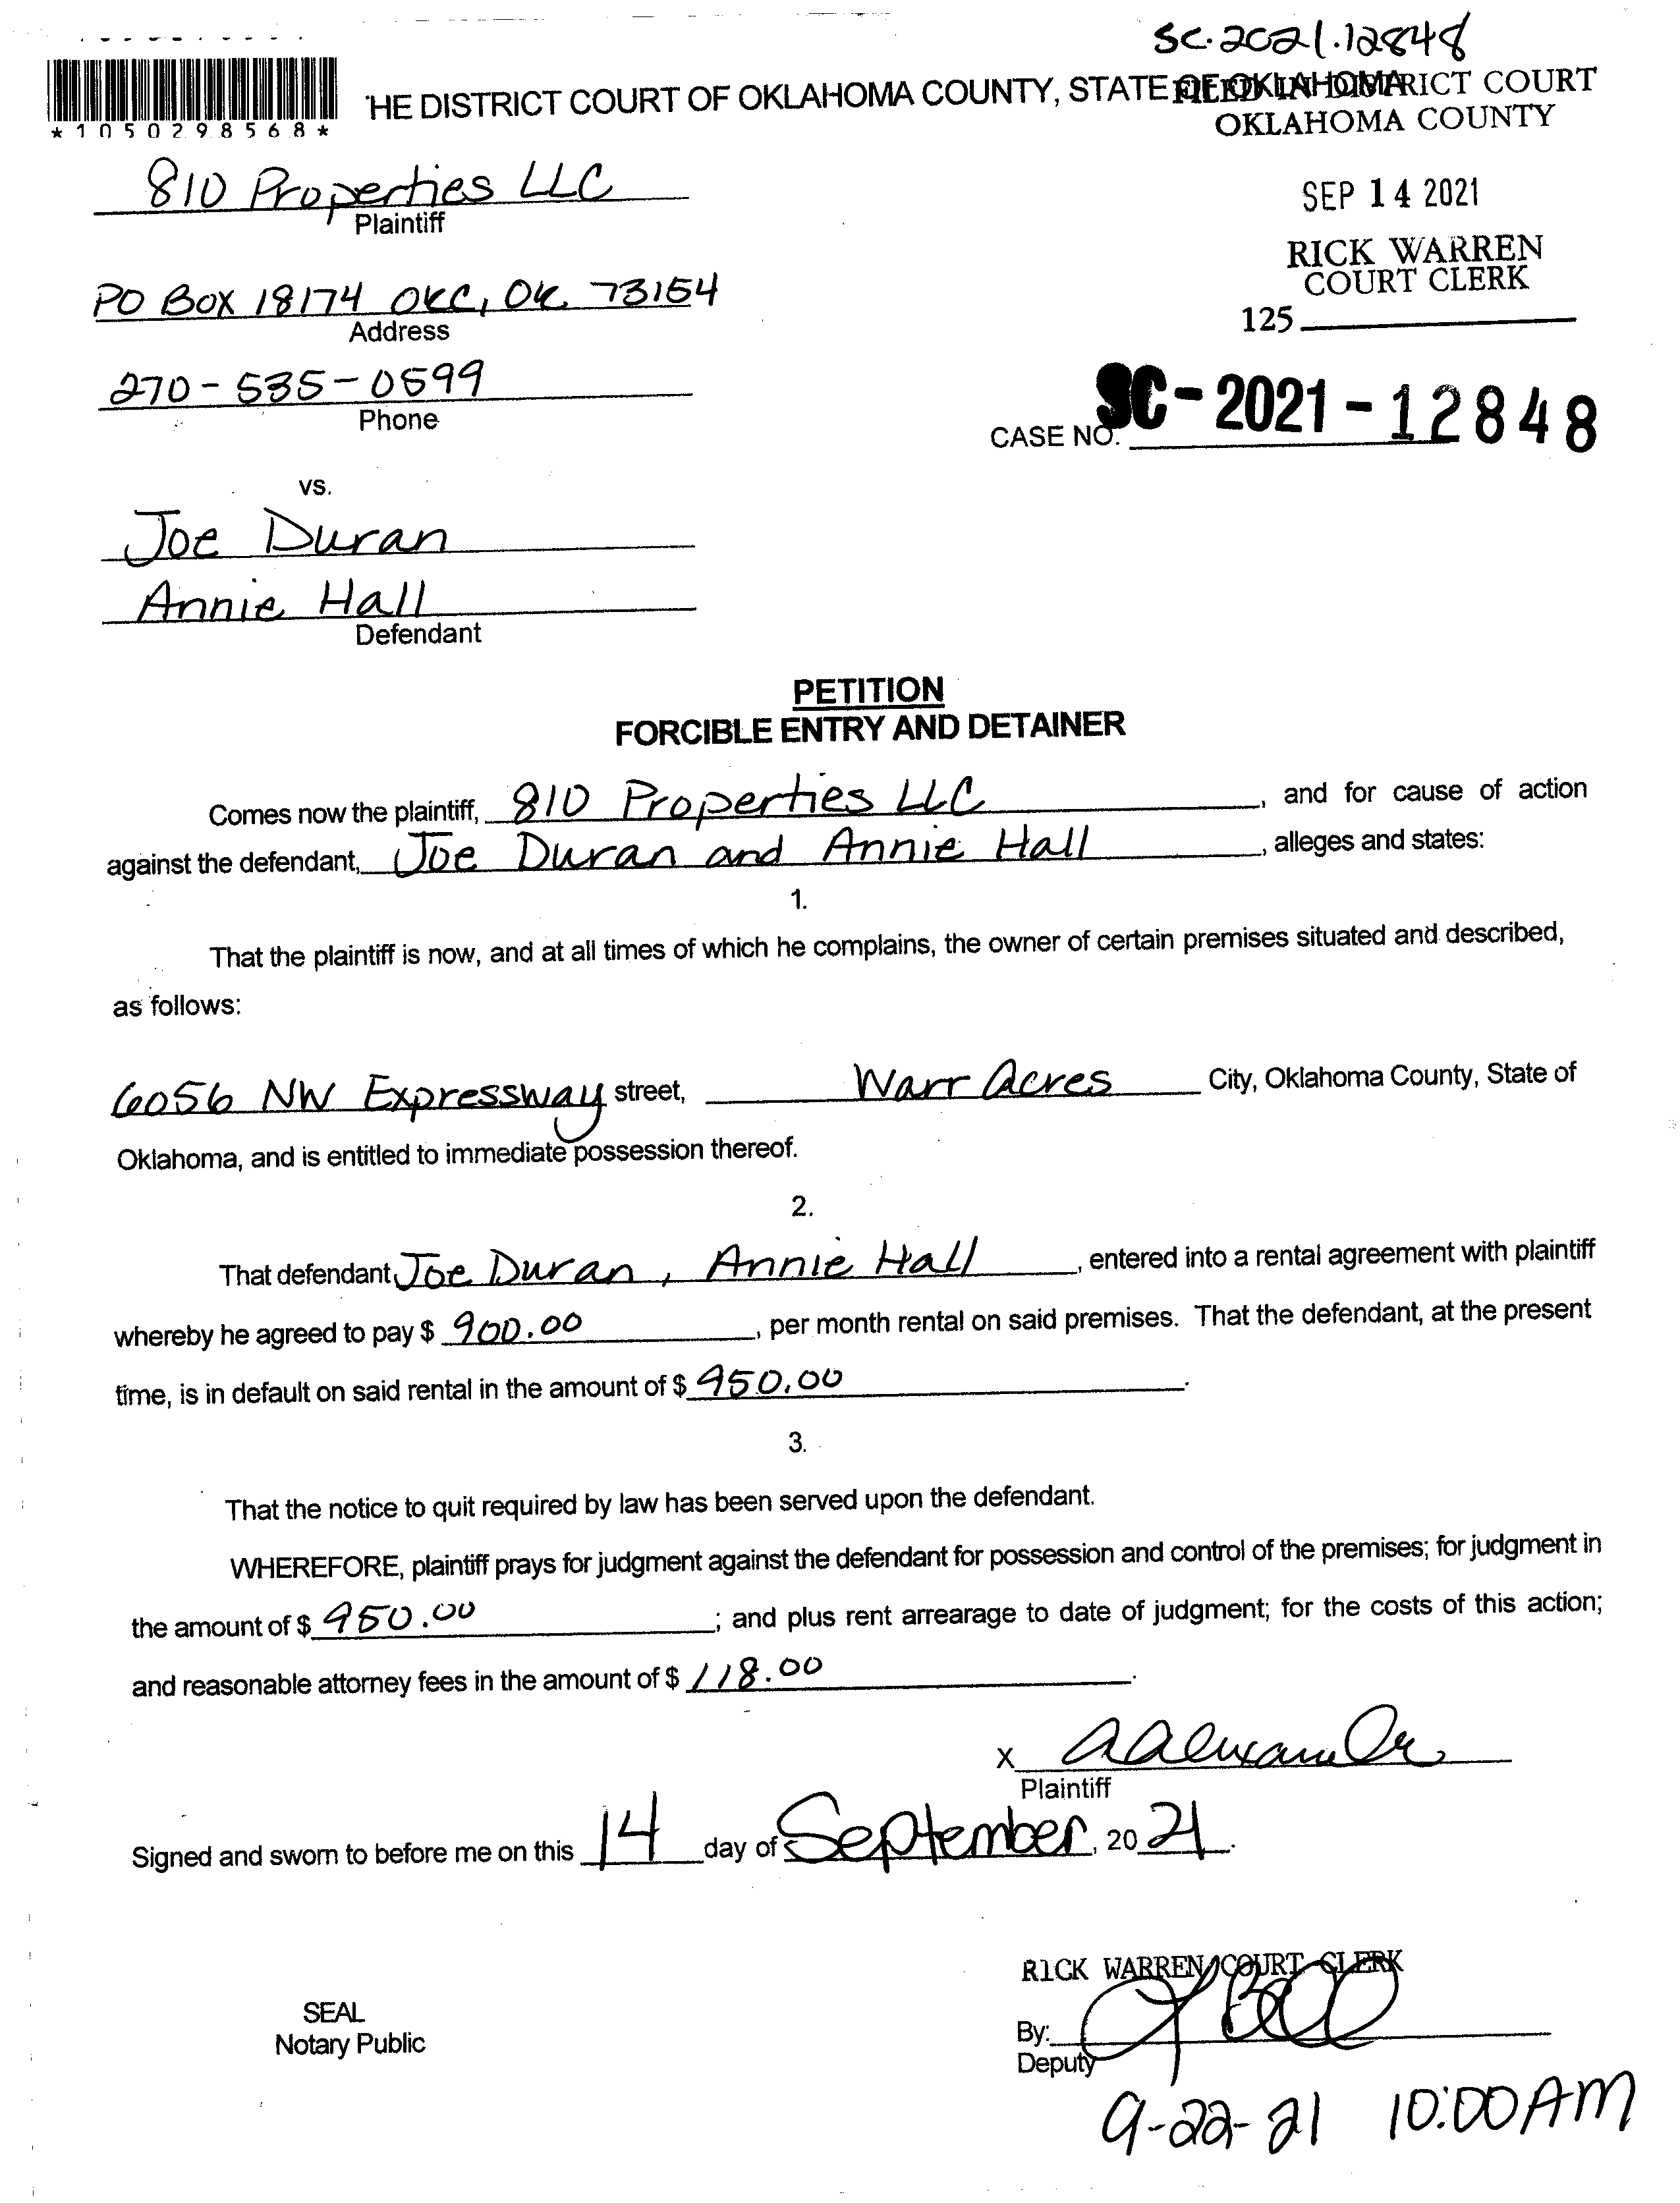 SC-2021-12848
'HE DISTRICT COURT OF OKLAHOMA COUNTY, STATE OF OKLAHOMA
FILED IN DISTRICT COURT
OKLAHOMA COUNTY
*1050298568*
810 Properties LLC
Plaintiff
SEP 14 2021
RICK WARREN
COURT CLERK
PO BOX 18174 OKC, OK 73154
Address
125
270-535-0599
Phone
CASE NO. SC-2021-12848
vs.
Joe Duran
Annie Hall
Defendant
PETITION
FORCIBLE ENTRY AND DETAINER
Comes now the plaintiff, 810 Properties LLC, and for cause of action
against the defendant, Joe Duran and Annie Hall, alleges and states:
1.
That the plaintiff is now, and at all times of which he complains, the owner of certain premises situated and described,
as follows:
6056 NW Expressway street, Warr Acres City, Oklahoma County, State of
Oklahoma, and is entitled to immediate possession thereof.
2.
That defendant Joe Duran, Annie Hall, entered into a rental agreement with plaintiff
whereby he agreed to pay $ 900.00, per month rental on said premises. That the defendant, at the present
time, is in default on said rental in the amount of $ 950.00.
3.
That the notice to quit required by law has been served upon the defendant.
WHEREFORE, plaintiff prays for judgment against the defendant for possession and control of the premises; for judgment in
the amount of $ 950.00; and plus rent arrearage to date of judgment; for the costs of this action;
and reasonable attorney fees in the amount of $ 118.00.
X
Plaintiff
Signed and sworn to before me on this 14 day of September, 2021.
RICK WARREN, COURT CLERK
SEAL
Notary Public
By:
Deputy
9-22-21 10:00AM